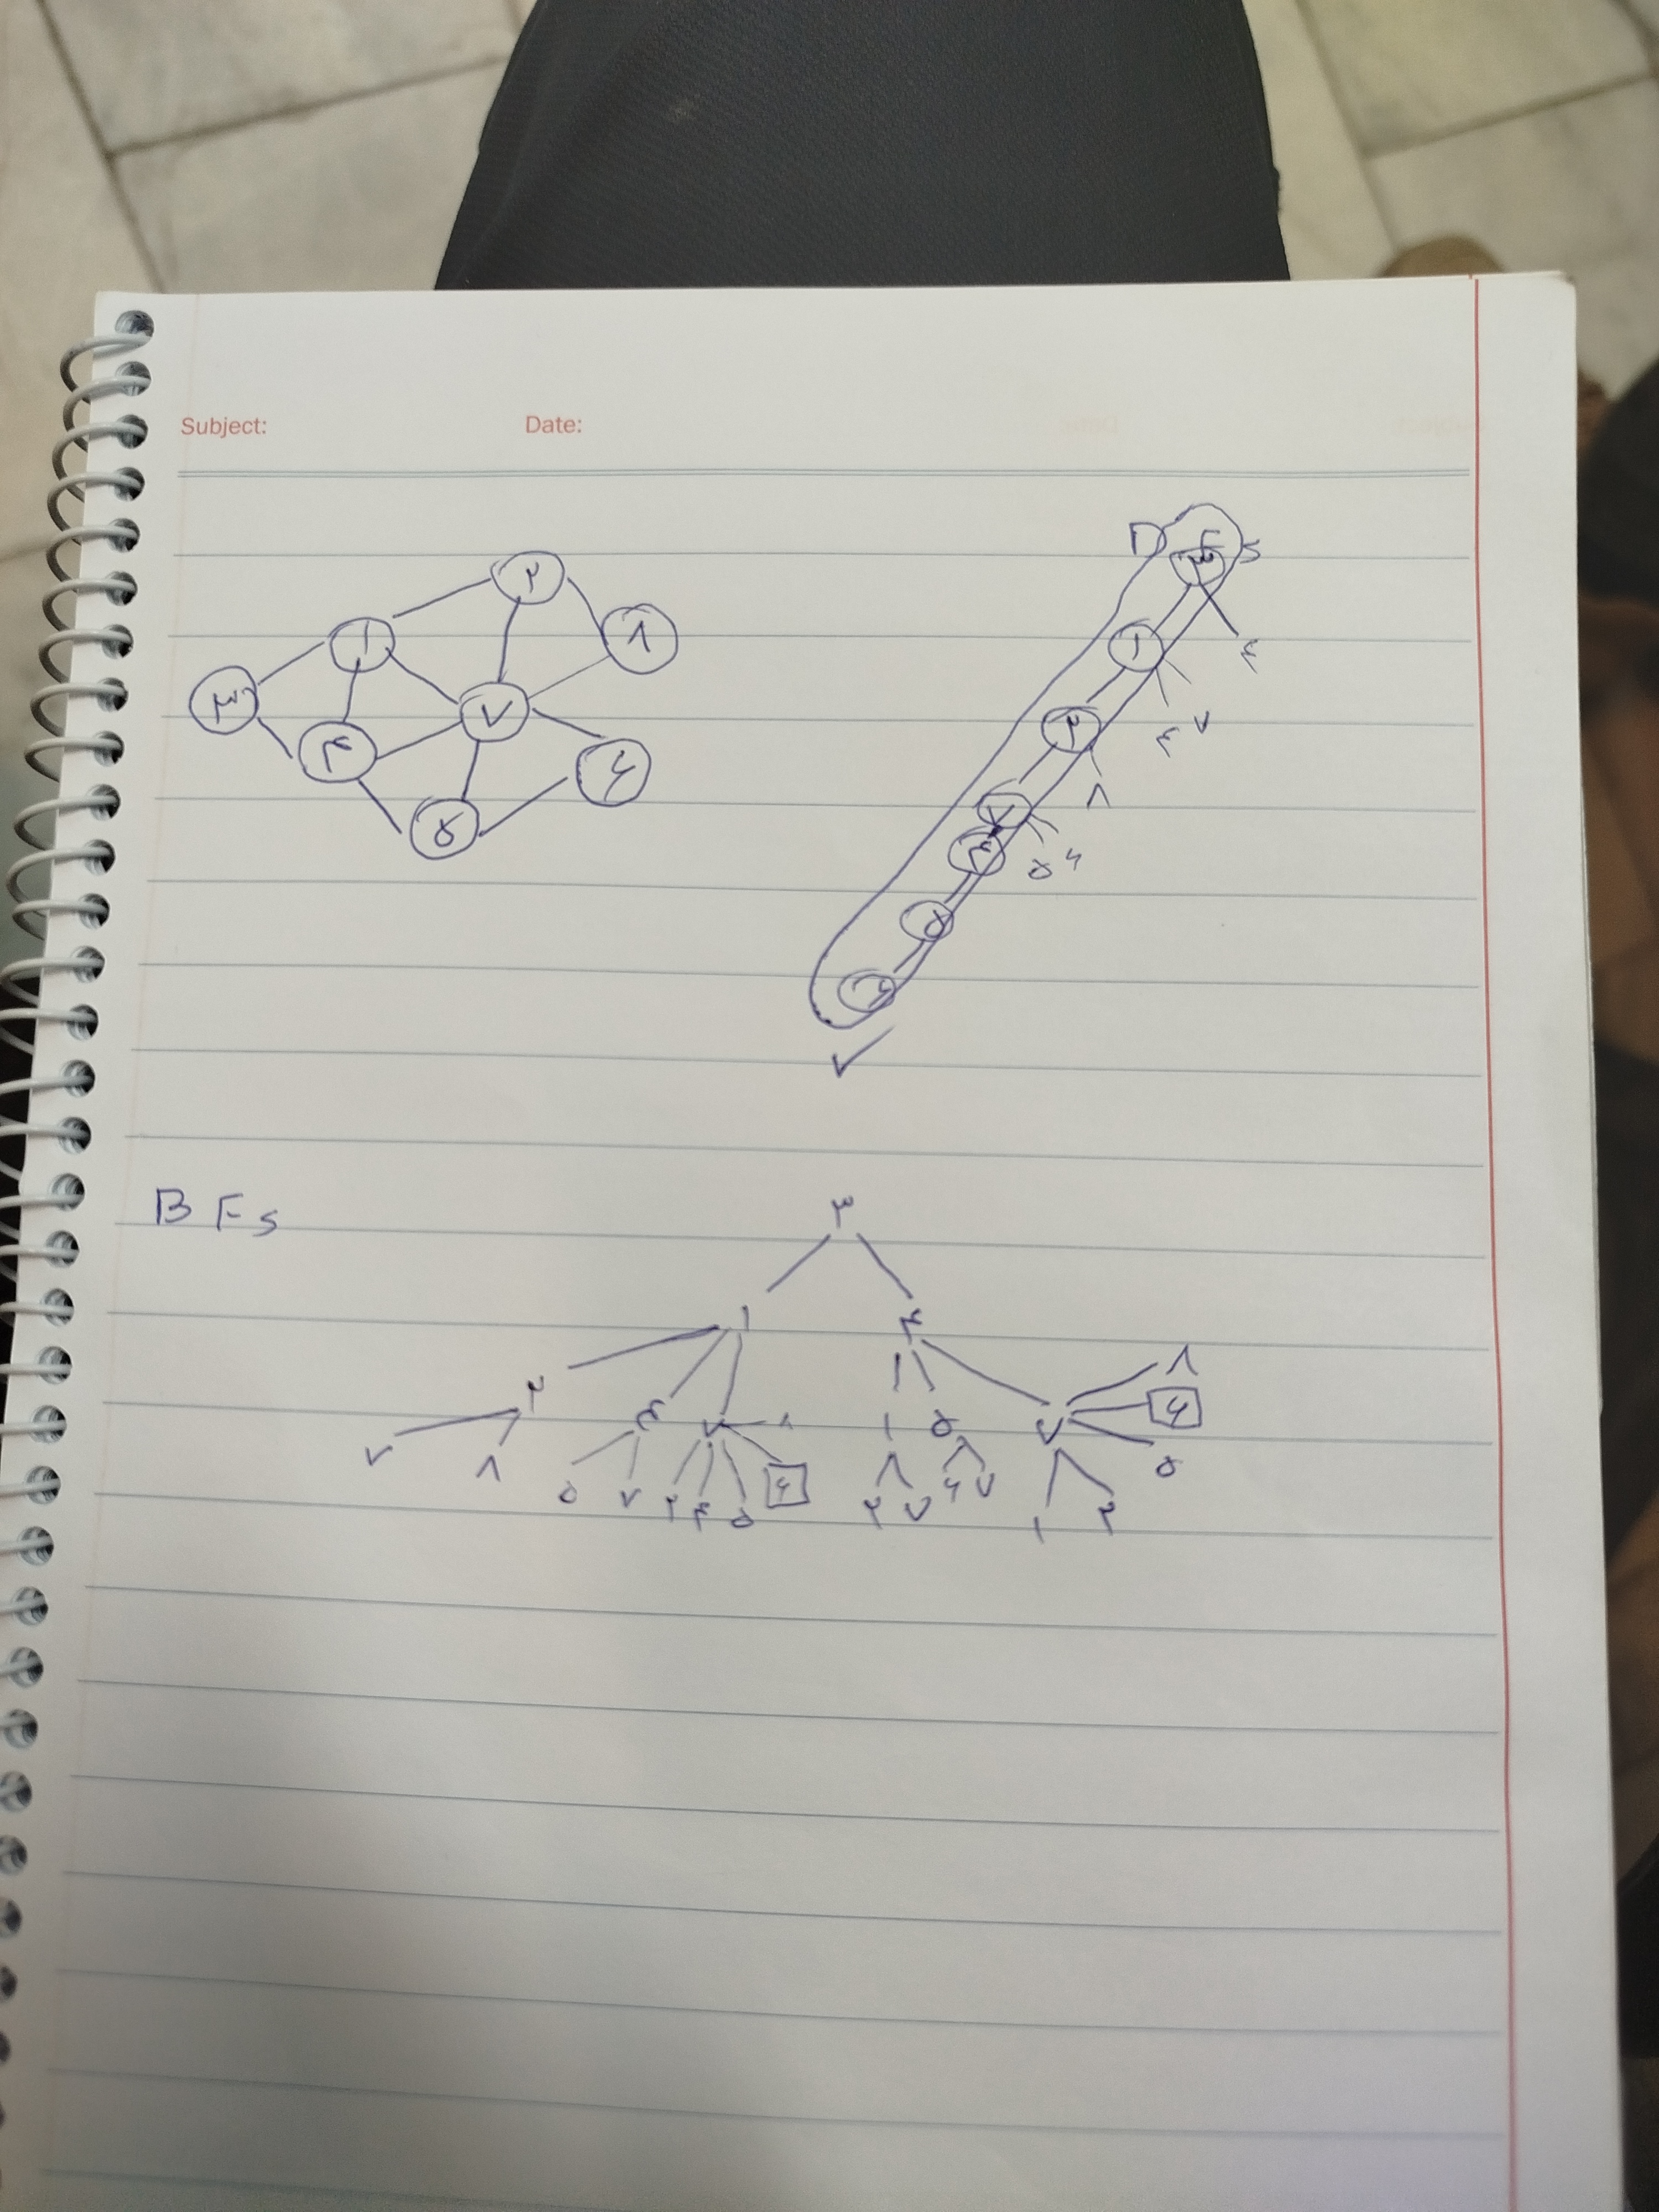 Subject: Date:
۲
۱ ۸
۳ ۷
۴ ۶
۵
DFS
۳
۱ ۴
۲ ۴ ۷
۷ ۸
۴ ۵ ۶
۵
۶
BFS
۳
۱ ۴
۲ ۴ ۷ ۸ ۱ ۵ ۷ ۸ ۶ ۵
۷ ۸ ۵ ۷ ۲ ۴ ۵ ۶ ۲ ۷ ۶ ۷ ۱ ۲